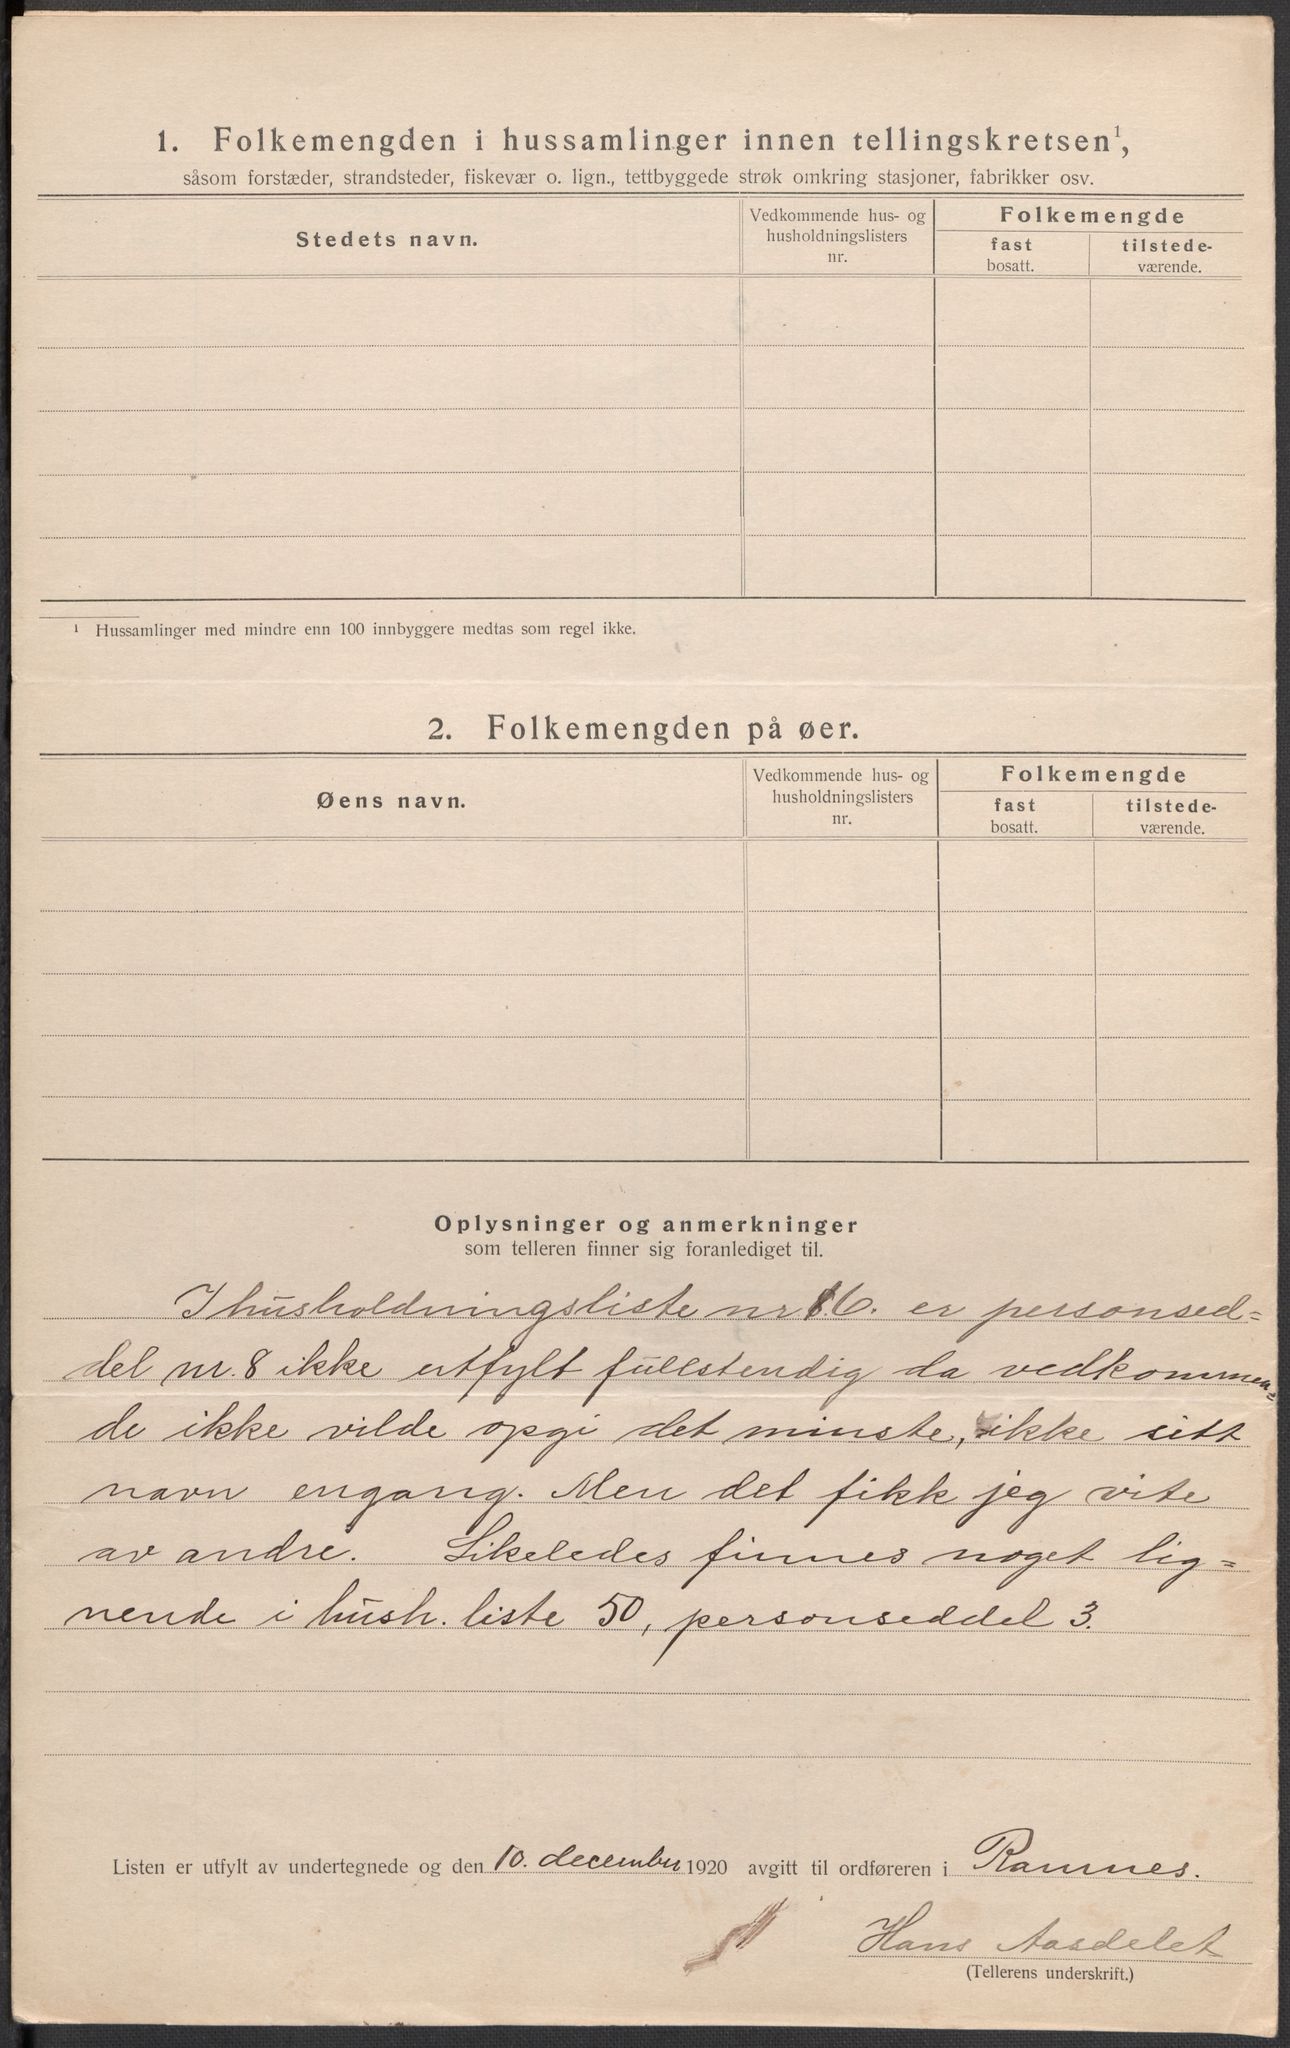 1. Folkemengden i hussamlinger innen tellingskretsen¹,
såsom forstæder, strandsteder, fiskevær o. lign., tettbyggede strøk omkring stasjoner, fabrikker osv.
Stedets navn.
Vedkommende hus- og
husholdningslisters
nr.
Folkemengde
fast
bosatt.
tilstede-
værende.
¹ Hussamlinger med mindre enn 100 innbyggere medtas som regel ikke.
2. Folkemengden på øer.
Øens navn.
Vedkommende hus- og
husholdningslisters
nr.
Folkemengde
fast
bosatt.
tilstede-
værende.
Oplysninger og anmerkninger
som telleren finner sig foranlediget til.
I husholdningsliste nr 16. er personsed=
del nr. 8 ikke utfylt fullstendig da vedkommen=
de ikke vilde opgi det minste, ikke sitt
navn engang. Men det fikk jeg vite
av andre. Likeledes finnes noget lig=
nende i hush. liste 50, personseddel 3.
Listen er utfylt av undertegnede og den 10. december 1920 avgitt til ordføreren i Ramnes.
Hans Aasdelet
(Tellerens underskrift.)